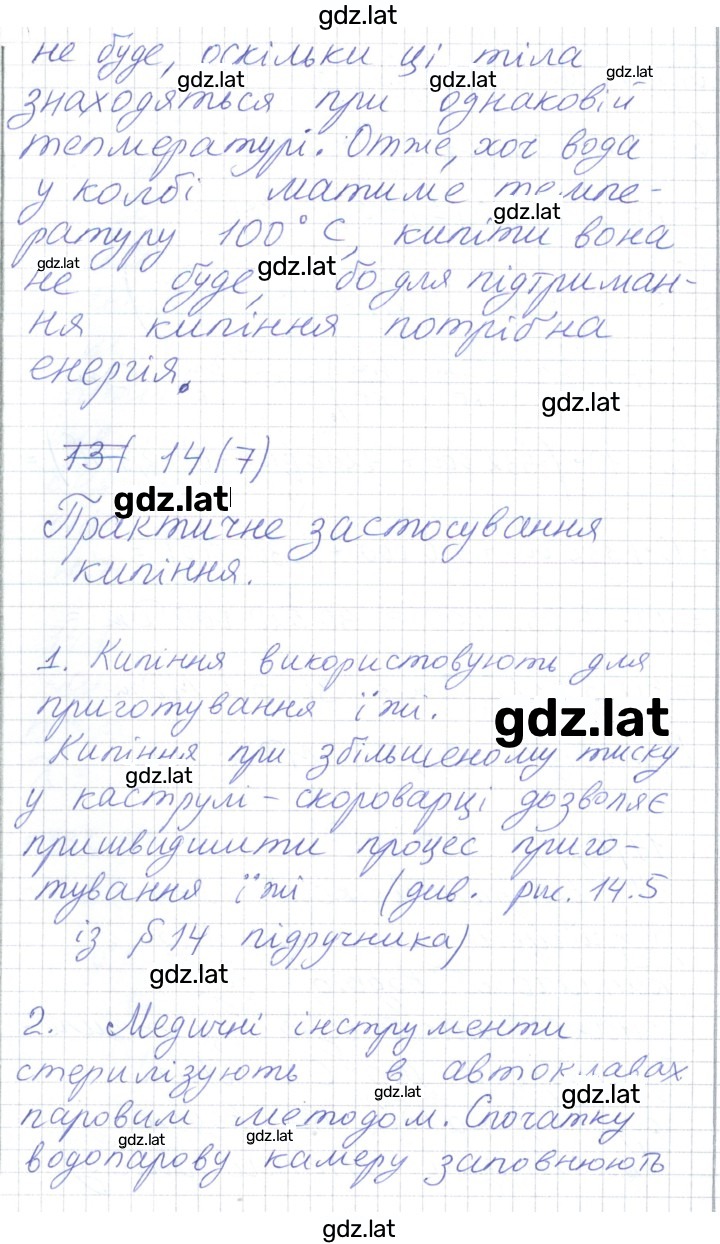 gdz.lat
не буде, оскільки ці тіла
gdz.lat gdz.lat gdz.lat
знаходяться при однаковій
тепмературі. Отже, хоч вода
у колбі матиме темпе-
gdz.lat
ратуру 100°C, кипіти вона
gdz.lat gdz.lat
не буде, бо для підтриман-
ня кипіння потрібна
енергія.
gdz.lat
13( 14(7)
gdz.lat
Практичне застосування
кипіння.
1. Кипіння використовують для
приготування їжі.
gdz.lat
Кипіння при збільшеному тиску
gdz.lat
у каструлі-скороварці дозволяє
пришвидшити процес приго-
тування їжі (див. рис. 14.5
із §14 підручника)
gdz.lat
2. Медичні інструменти
стерилізують в автоклавах
gdz.lat gdz.lat
паровим методом. Спочатку
gdz.lat gdz.lat
водопарову камеру заповнюють
gdz.lat